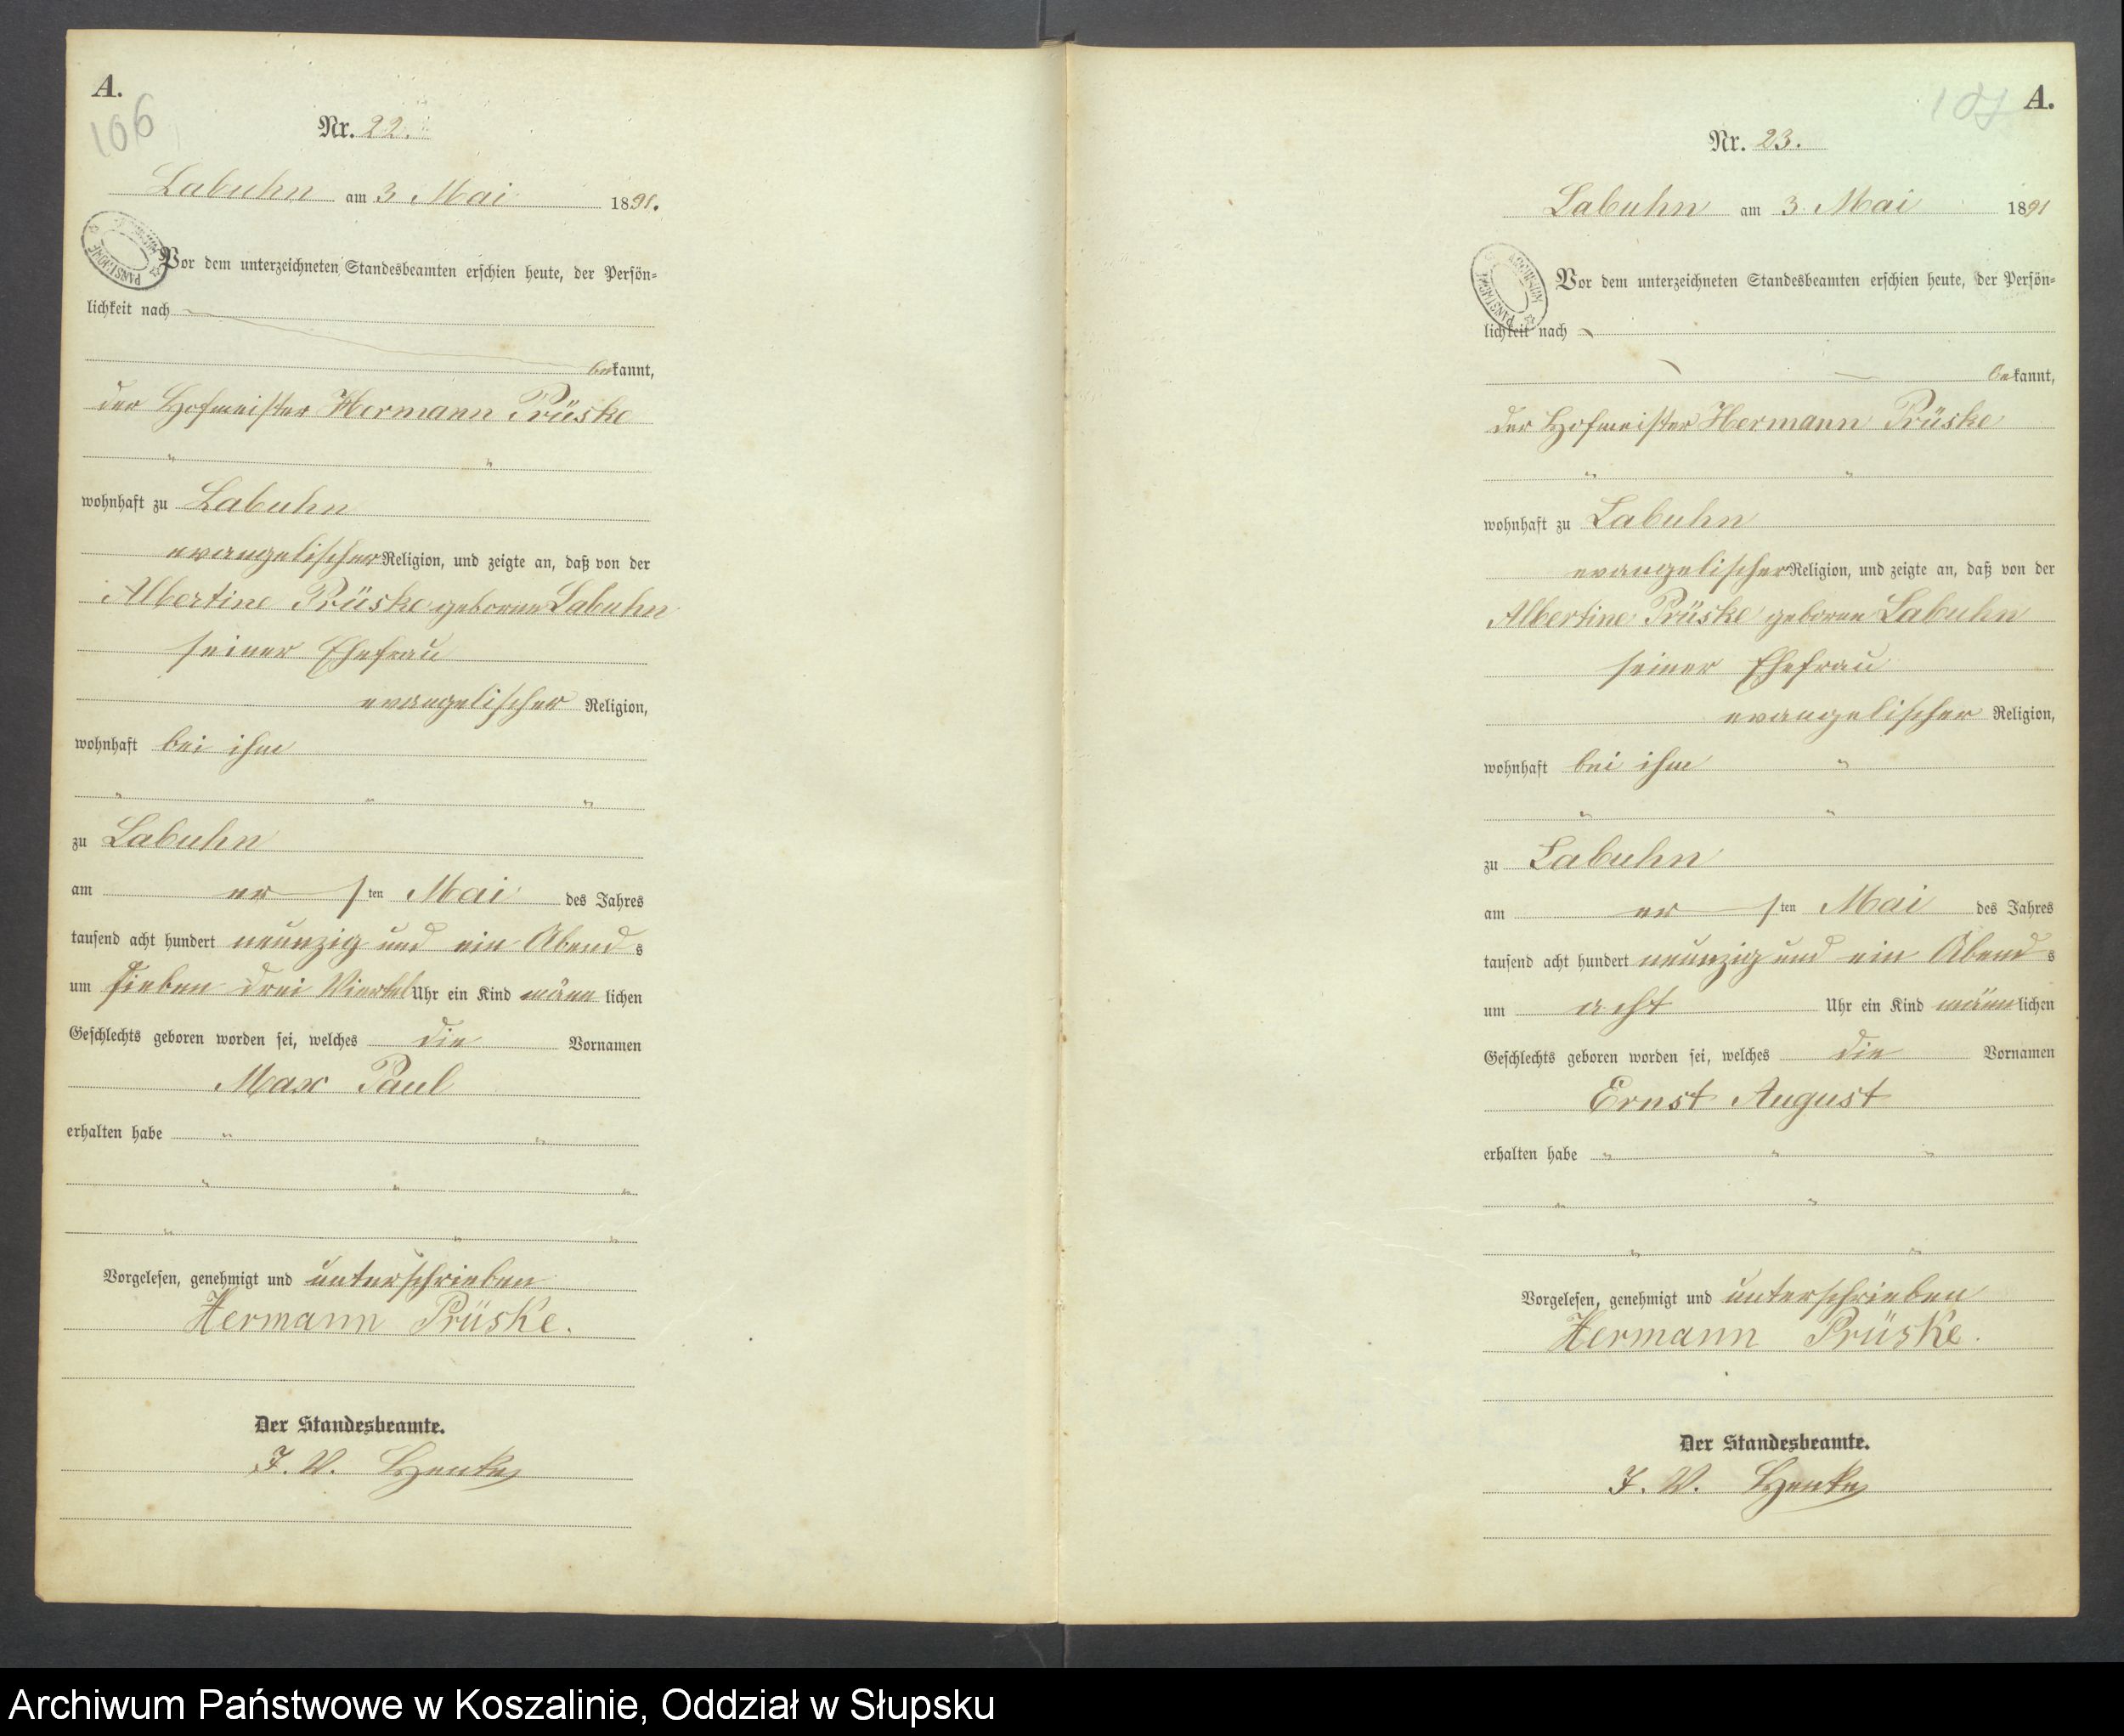 A.
106
Nr. 22.
Labuhn am 3 Mai 1891.
Vor dem unterzeichneten Standesbeamten erschien heute, der Persön-
lichkeit nach
bekannt,
der Hofmeister Hermann Prüske
wohnhaft zu Labuhn
evangelischer Religion, und zeigte an, daß von der
Albertine Prüske geborene Labuhn
seiner Ehefrau
evangelischer Religion,
wohnhaft bei ihm
zu Labuhn
am er 1ten Mai des Jahres
tausend acht hundert neunzig und ein Abends
um sieben drei Viertel Uhr ein Kind männlichen
Geschlechts geboren worden sei, welches die Vornamen
Max Paul
erhalten habe
Vorgelesen, genehmigt und unterschrieben
Hermann Prüske.
Der Standesbeamte.
J. V. Henke
A.
107
Nr. 23.
Labuhn am 3 Mai 1891
Vor dem unterzeichneten Standesbeamten erschien heute, der Persön-
lichkeit nach
bekannt,
der Hofmeister Hermann Prüske
wohnhaft zu Labuhn
evangelischer Religion, und zeigte an, daß von der
Albertine Prüske geborene Labuhn
seiner Ehefrau
evangelischer Religion,
wohnhaft bei ihm
zu Labuhn
am er 1ten Mai des Jahres
tausend acht hundert neunzig und ein Abends
um acht Uhr ein Kind männlichen
Geschlechts geboren worden sei, welches die Vornamen
Ernst August
erhalten habe
Vorgelesen, genehmigt und unterschrieben
Hermann Prüske.
Der Standesbeamte.
J. V. Henke
Archiwum Państwowe w Koszalinie, Oddział w Słupsku